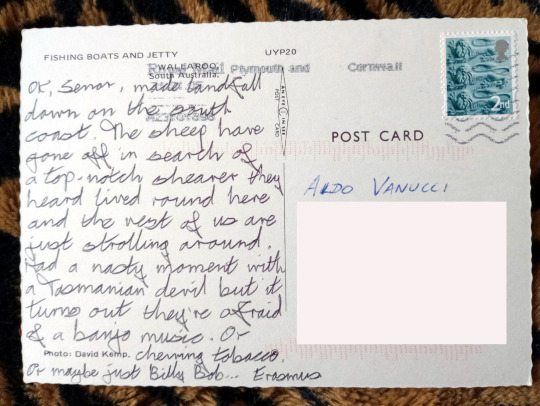 FISHING BOATS AND JETTY
UYP20
WALLAROO,
South Australia.
Royal Mail Plymouth and Cornwall
POST CARD
2nd
OK, Senor, made landfall
down on the south
coast. The sheep have
gone off in search of
a top-notch shearer they
heard lived round here
and the rest of us are
just strolling around.
Had a nasty moment with
a Tasmanian devil but it
turns out they're afraid
of a banjo music. Or
chewing tobacco.
Or maybe just Billy Bob... Erasmus
Photo: David Kemp.
ALDO VANUCCI
POST CARD